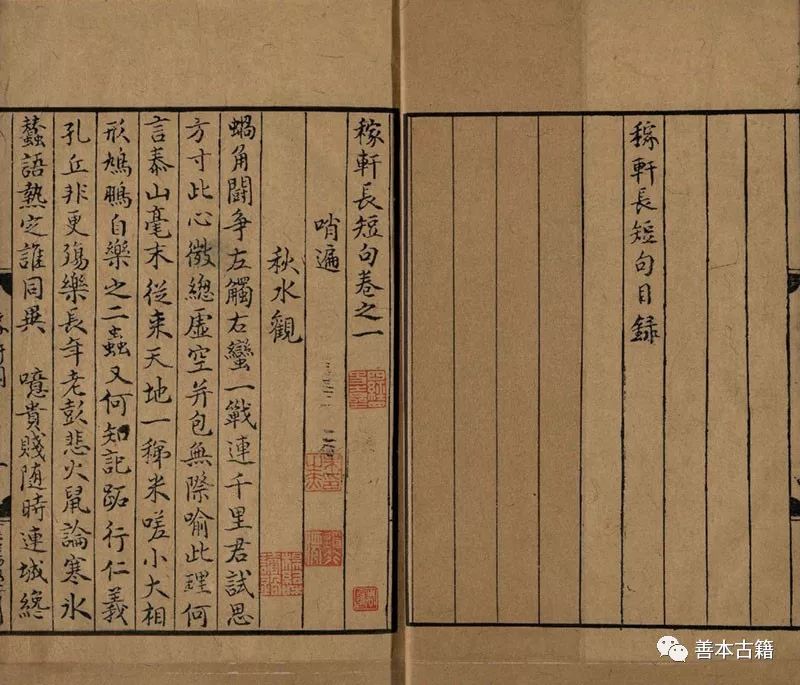 稼軒長短句目錄
稼軒長短句卷之一
哨遍
秋水觀
蝸角鬪争左觸右蠻一戰連千里君試思
方寸此心微總虛空并包無際喻此理何
言泰山毫末從来天地一稊米嗟小大相
形鳩鵬自樂之二蟲又何知記跖行仁義
孔丘非更殤樂長年老彭悲火鼠論寒氷
蠶語熱定誰同異 噫貴賤随時連城纔
善本古籍